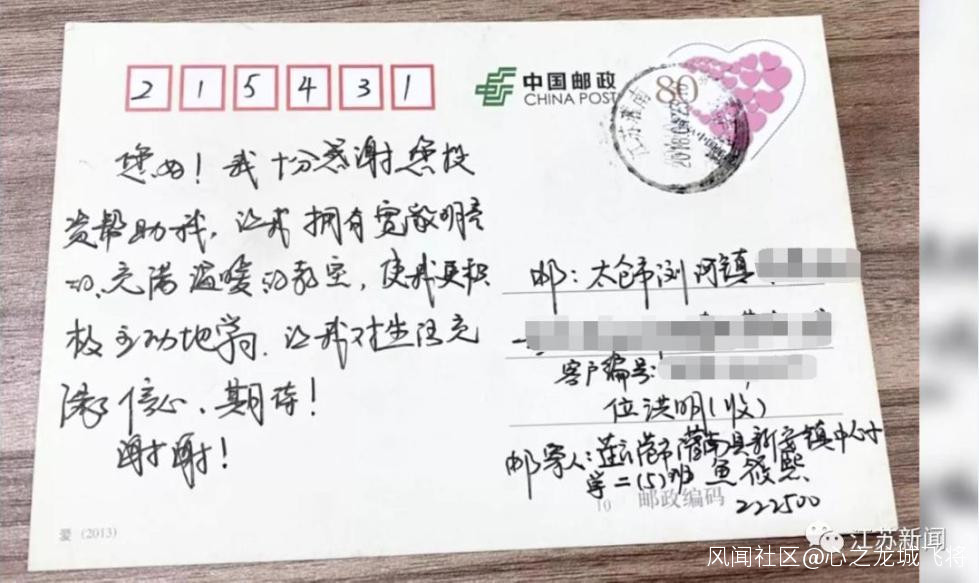 215431
中国邮政
CHINA POST
80
江苏灌南
您好！我十分感谢您投
资帮助我，让我拥有宽敞明亮
的、充满温暖的教室，使我更积
极主动地学习。让我对生活充
满了信心、期待！
谢谢！
邮：太仓市浏河镇
客户编号：
位洪明（收）
邮寄人：连云港市灌南县新安镇中心小
学二（5）班 鱼筱熙
邮政编码
222500
爱 (2013)
江苏新闻
风闻社区@心之龙城飞将